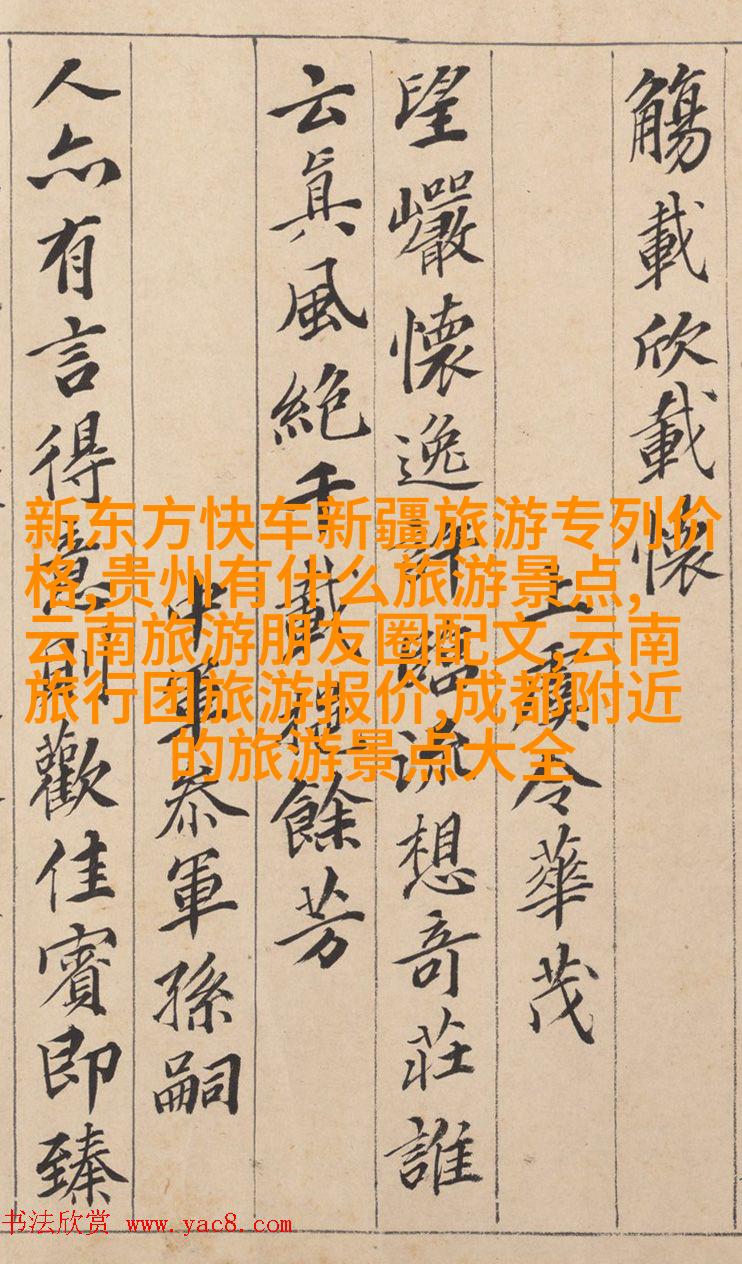 觴載欣載懷
上虞令華茂
望巖懷逸許臨流想奇莊誰
云眞風絕千載挹餘芳
中軍叅軍孫嗣
人亦有言得意則歡佳賓即臻
新东方快车新疆旅游专列价
格,贵州有什么旅游景点,
云南旅游朋友圈配文,云南
旅行团旅游报价,成都附近
的旅游景点大全
书法欣赏 www.yac8.com